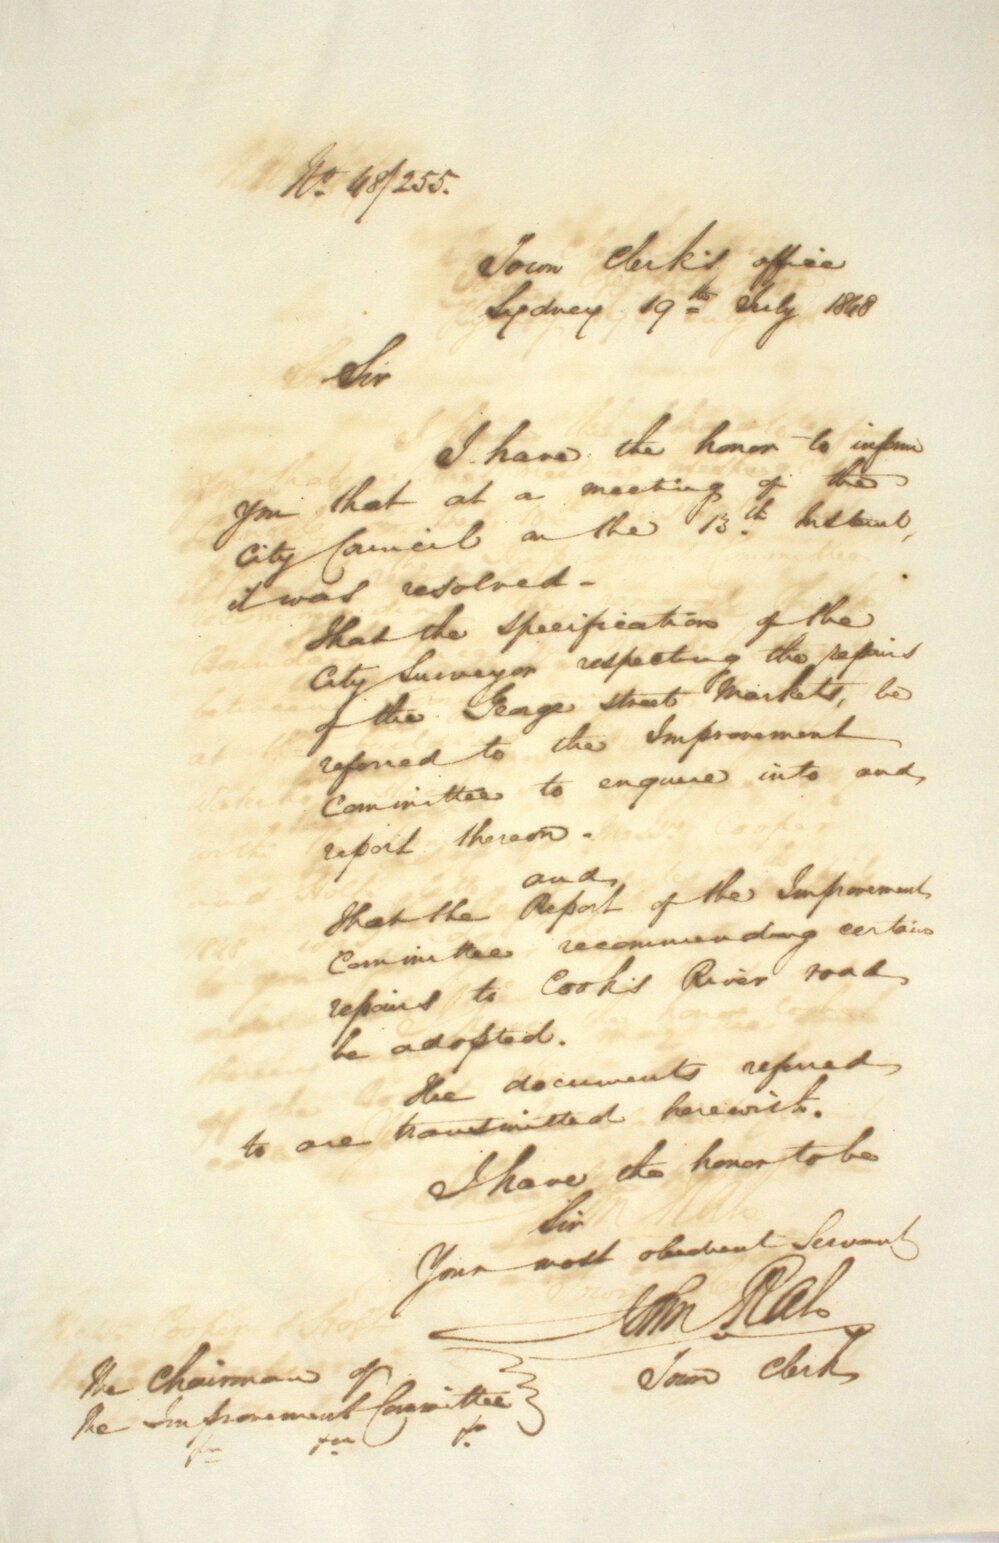 No. 48/255.
Town Clerk's office
Sydney 19th July 1848
Sir
I have the honor to inform
you that at a meeting of the
City Council on the 13th Instant,
it was resolved -
That the specification of the
City Surveyor respecting the repairs
of the George street Markets, be
referred to the Improvement
Committee to enquire into and
report thereon.
and,
That the Report of the Improvement
Committee recommending certain
repairs to Cook's River road
be adopted.
The documents referred
to are transmitted herewith.
I have the honor to be
Sir
Your most obedient Servant
John
Town Clerk
The Chairman of
the Improvement Committee